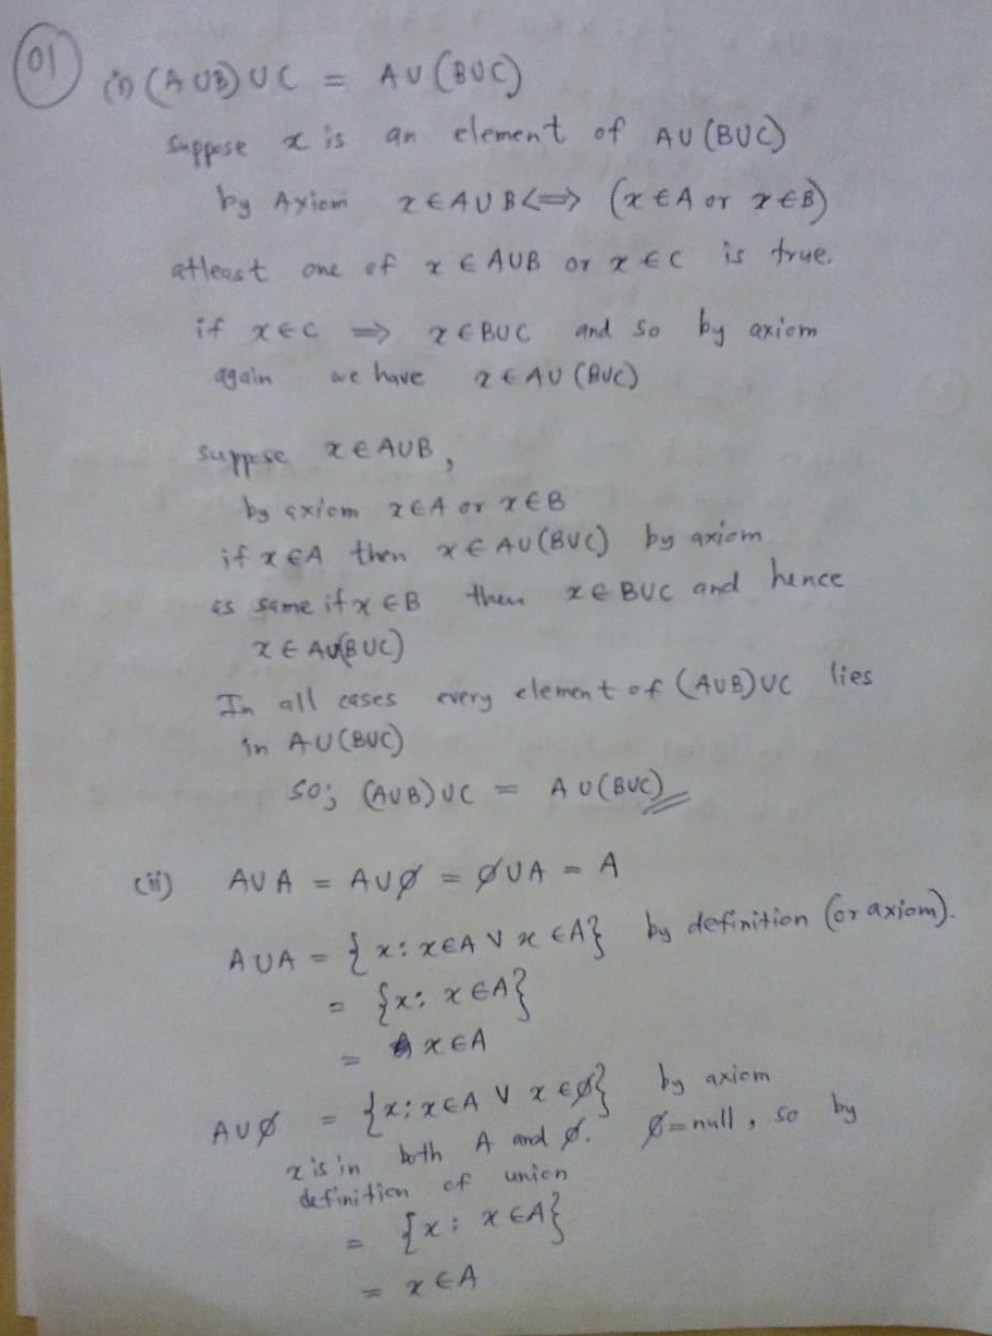 01
(i) (A∪B)∪C = A∪(B∪C)
suppose x is an element of A∪(B∪C)
by Axiom x∈A∪B⟺ (x∈A or x∈B)
atleast one of x∈A∪B or x∈C is true.
if x∈C ⟹ x∈B∪C and so by axiom
again we have x∈A∪(B∪C)
suppose x∈A∪B,
by axiom x∈A or x∈B
if x∈A then x∈A∪(B∪C) by axiom
as same if x∈B then x∈B∪C and hence
x∈A∪(B∪C)
In all cases every element of (A∪B)∪C lies
in A∪(B∪C)
so; (A∪B)∪C = A∪(B∪C)
(ii) A∪A = A∪∅ = ∅∪A = A
A∪A = {x: x∈A ∨ x∈A} by definition (or axiom).
= {x: x∈A}
= x∈A
A∪∅ = {x: x∈A ∨ x∈∅} by axiom
x is in both A and ∅. ∅=null, so by
definition of union
= {x: x∈A}
= x∈A